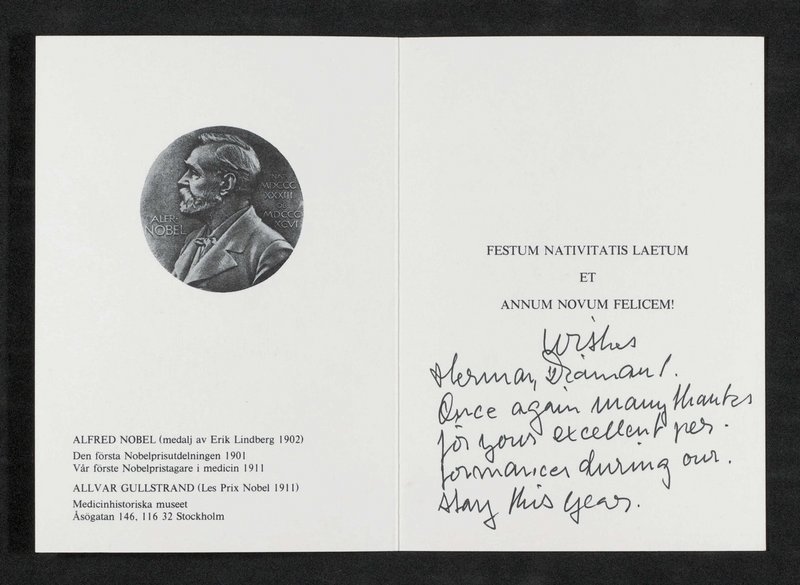 ALFR· NOBEL
NAT·
MDCCC
XXXIII
OB·
MDCCC
XCVI
ALFRED NOBEL (medalj av Erik Lindberg 1902)
Den första Nobelprisutdelningen 1901
Vår förste Nobelpristagare i medicin 1911
ALLVAR GULLSTRAND (Les Prix Nobel 1911)
Medicinhistoriska museet
Åsögatan 146, 116 32 Stockholm
FESTUM NATIVITATIS LAETUM
ET
ANNUM NOVUM FELICEM!
Wishes
Herman Diamant.
Once again many thanks
for your excellent per-
formances during our
stay this year.